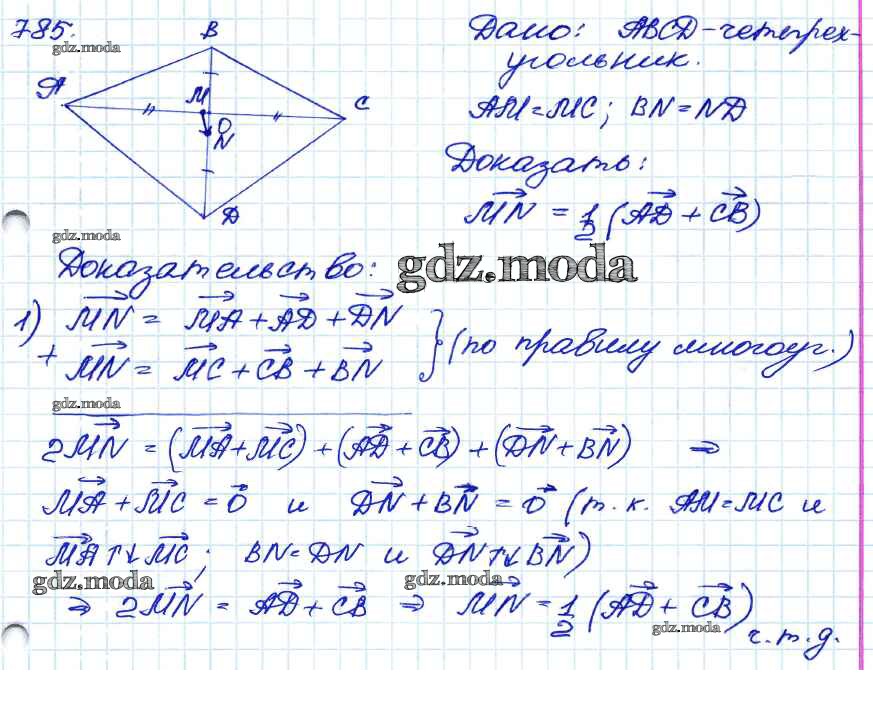 785.
gdz.moda
B
A
M
C
O
N
D
gdz.moda
Дано: ABCD - четырех-
угольник.
AM = MC; BN = ND
Доказать:
MN = 1/2 (AD + CB)
Доказательство:
gdz.moda
1) MN = MA + AD + DN
+ MN = MC + CB + BN
} (по правилу многоуг.)
gdz.moda
2MN = (MA + MC) + (AD + CB) + (DN + BN) ⇒
MA + MC = 0 и DN + BN = 0 (т.к. AM = MC и
MA ↑↓ MC; BN = DN и DN ↑↓ BN)
gdz.moda
gdz.moda
⇒ 2MN = AD + CB ⇒ MN = 1/2 (AD + CB)
gdz.moda
ч.т.д.